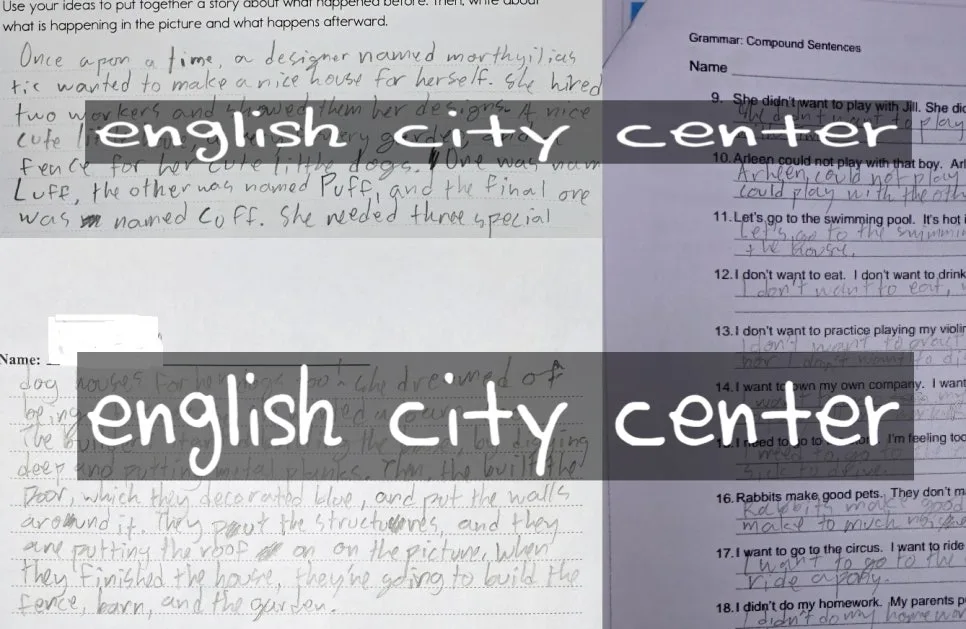 Use your ideas to put together a story about what happened before. Then, write about
what is happening in the picture and what happens afterward.
Once apon a time, a designer named morthyilias
tic wanted to make a nice house for herself. She hired
two workers and showed them her designs. A nice
cute
fence for her cute little dogs. One was nam
Luff, the other was named Puff, and the final one
was named Cuff. She needed three special
english city center
Name:
dog houses for her dogs too! She dreamed of
being
english city center
The
deep and putting metal planks. Then, the built the
Door, which they decorated blue, and put the walls
around it. They put the structures, and they
are putting the roof on on the picture. When
they finished the house, they're going to build the
fence, barn, and the garden.
Grammar: Compound Sentences
Name
9. She didn't want to play with Jill. She di
play
10. Arleen could not play with that boy. Arl
Arleen could not play
could play with the oth
11. Let's go to the swimming pool. It's hot i
Let's go to the swimmin
the house.
12. I don't want to eat. I don't want to drink
I don't want to eat,
13. I don't want to practice playing my violin
I don't want to pract
nor I don't want to di
14. I want to own my own company. I want
I need to go to I'm feeling too
I need to go to
sick to drive.
16. Rabbits make good pets. They don't m
Rabbits make good
make to much noise
17. I want to go to the circus. I want to ride
I want to go to the
ride a pony.
18. I didn't do my homework. My parents p
I didn't do my homewor